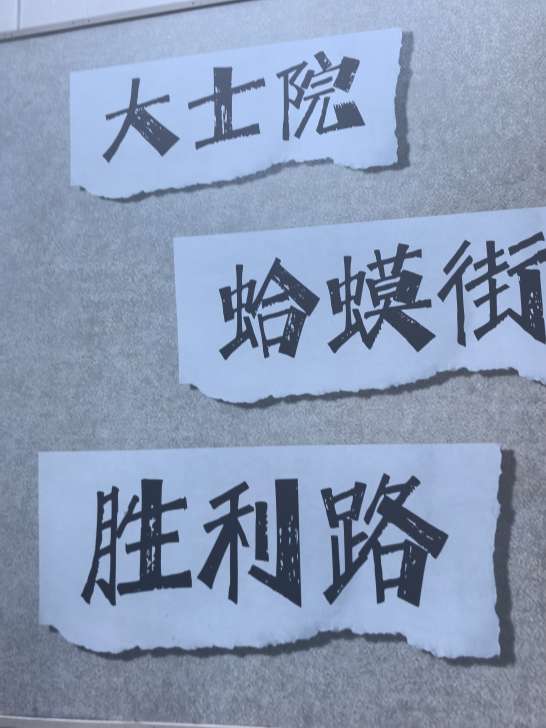 大士院
蛤蟆街
胜利路